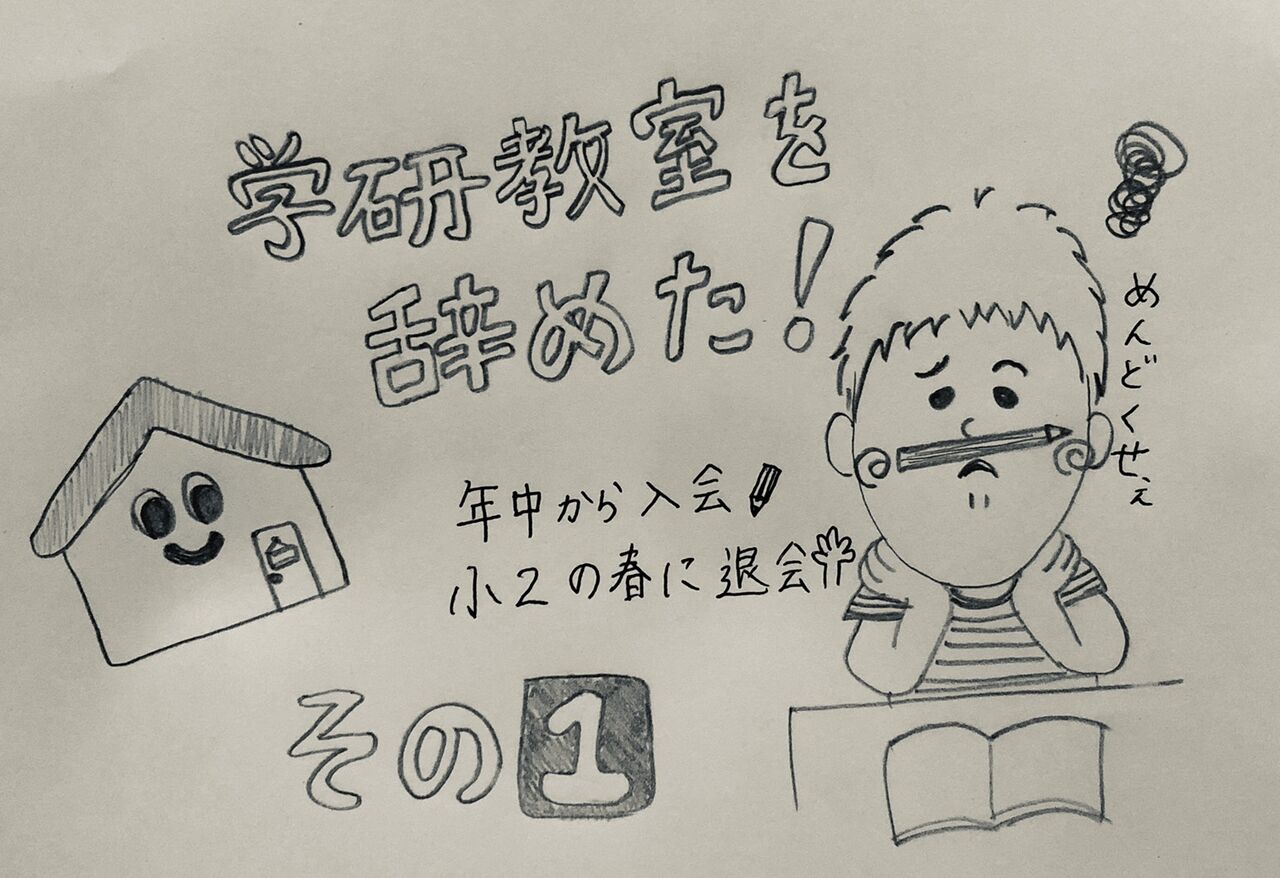 学研教室を
辞めた!
年中から入会
小2の春に退会
その1
めんどくせぇ